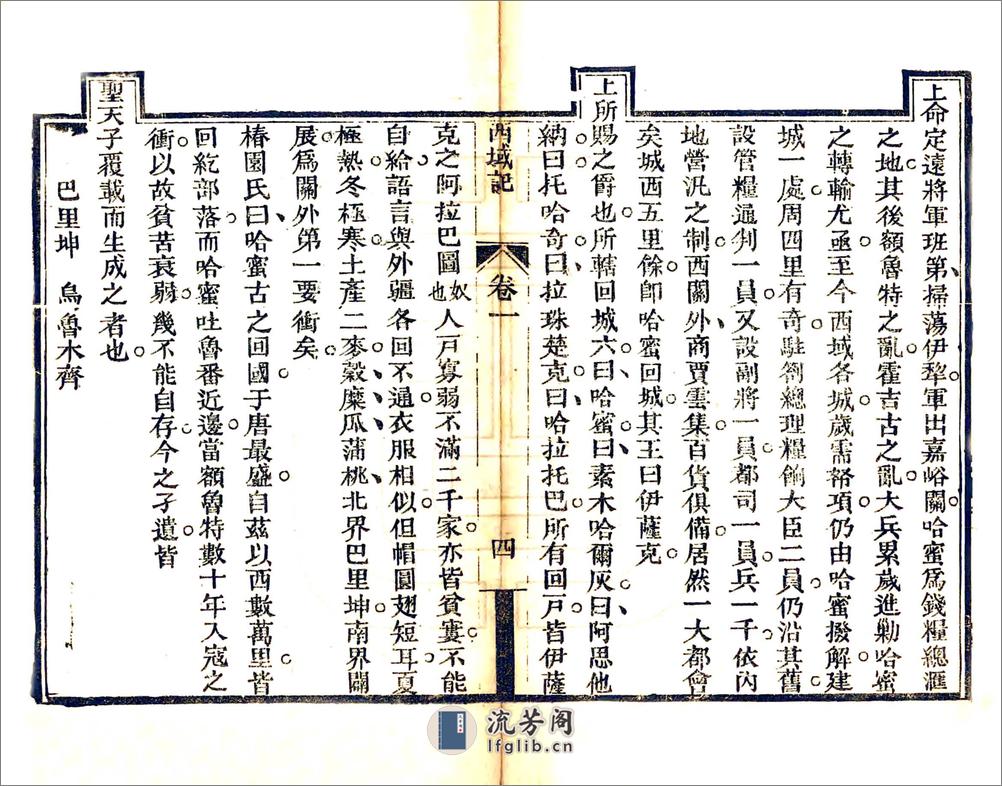 上命定遠將軍班第、掃蕩伊犂。軍出嘉峪關。哈蜜爲錢糧總滙
之地。其後額魯特之亂。霍吉古之亂。大兵累歲進勦。哈蜜
之轉輸尤亟。至今西域各城歲需帑項。仍由哈蜜撥解。建
城一處。周四里有奇。駐劄總理糧餉大臣二員。仍沿其舊
設管糧通判一員。又設副將一員、都司一員、兵一千。依內
地營汛之制。西關、外商賈雲集。百貨俱備。居然一大都會
矣。城西五里餘。卽哈蜜回城。其王曰伊薩克
上所賜之爵也。所轄回城六。曰哈蜜、曰素木哈爾灰、曰阿思他
納、曰托哈奇、曰拉珠楚克、曰哈拉托巴。所有回戸。皆伊薩
西域記
卷一
四
克之阿拉巴圖奴也人戸寡弱。不滿二千家。亦皆貧窶。不能
自給。語言與外疆各回不通。衣服相似。但帽圓翅短耳。夏
極熱。冬極寒。土產二麥、穀、糜、瓜、蒲桃、北界巴里坤。南界闢
展。爲關外第一要衝矣。
椿園氏曰、哈蜜古之回國。于唐最盛。自茲以西數萬里。皆
回紇部落。而哈蜜吐魯番近邊。當額魯特數十年入寇之
衝。以故貧苦衰弱。幾不能自存。今之孑遺。皆
聖天子覆載而生成之者也。
巴里坤 烏魯木齊
流芳阁
lfglib.cn